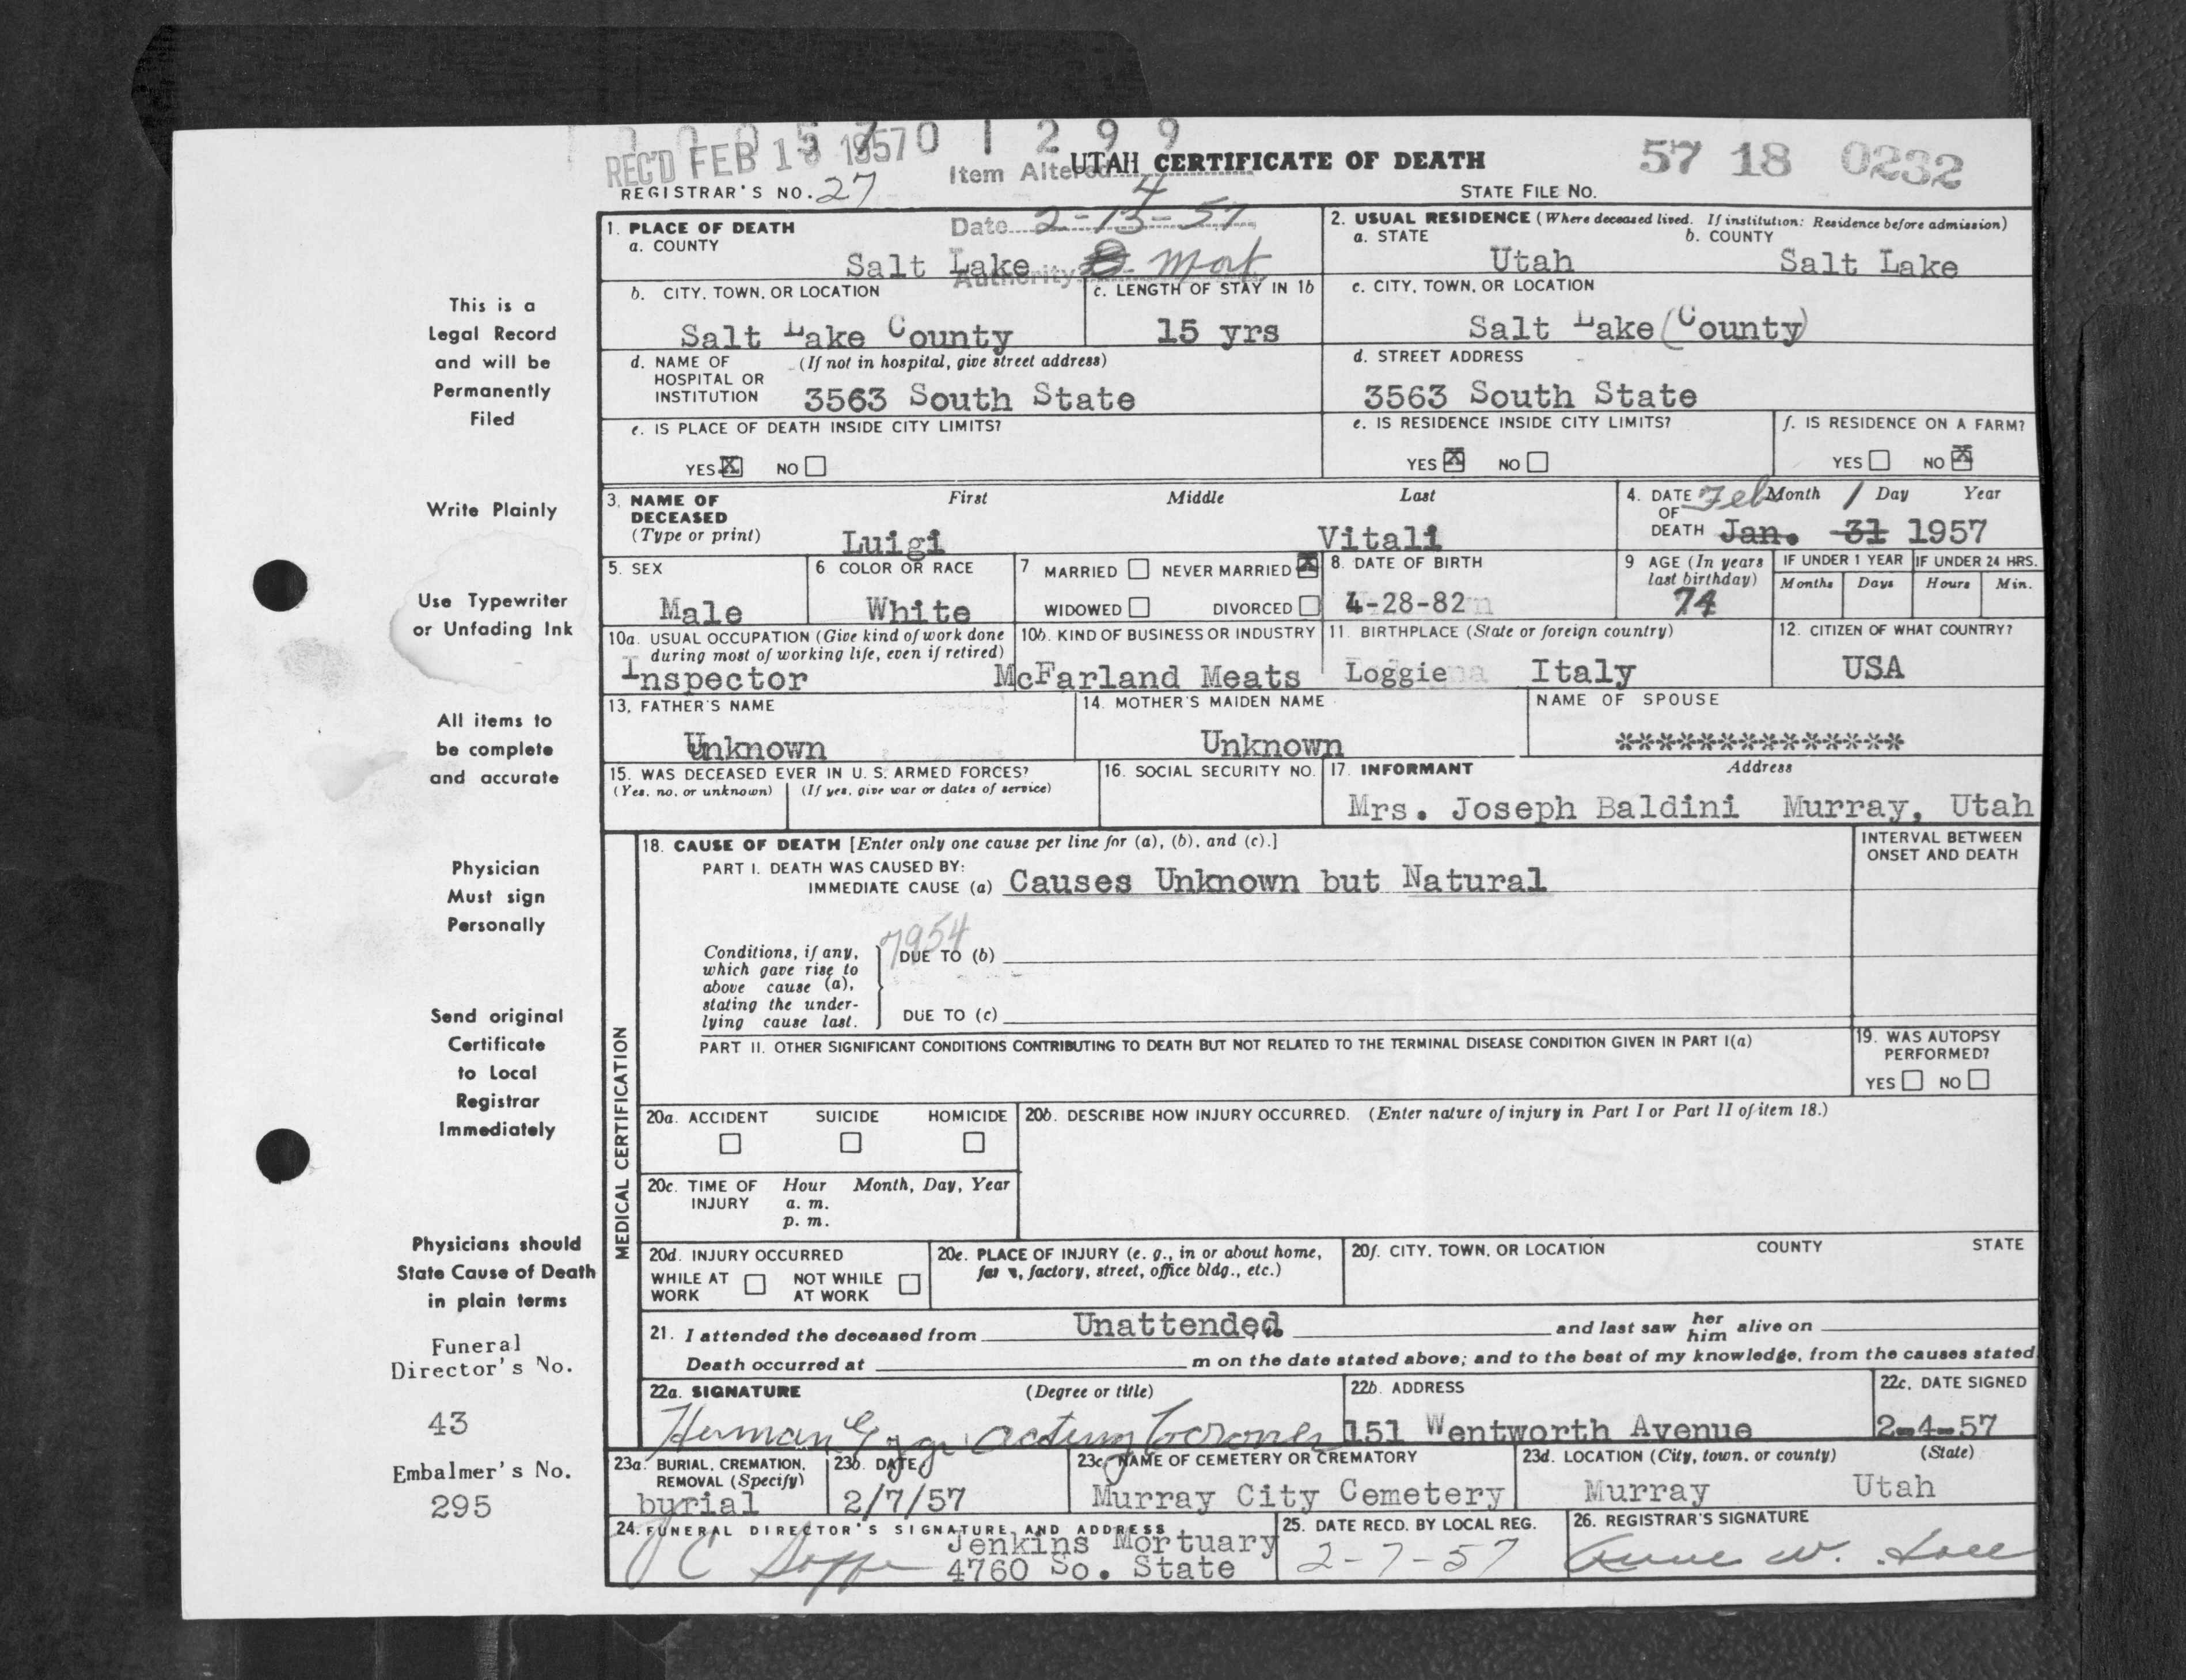 REC'D FEB 18 1957
0 1 2 9 9
UTAH CERTIFICATE OF DEATH
57 18 0232
REGISTRAR'S NO. 27
Item Altered 4
STATE FILE No.
Date 2-13-57
Authority Mort
1. PLACE OF DEATH
a. COUNTY
Salt Lake
2. USUAL RESIDENCE (Where deceased lived. If institution: Residence before admission)
a. STATE
b. COUNTY
Utah
Salt Lake
b. CITY, TOWN, OR LOCATION
c. LENGTH OF STAY IN 1b
c. CITY, TOWN, OR LOCATION
Salt Lake County
15 yrs
Salt Lake (County)
d. NAME OF (If not in hospital, give street address)
HOSPITAL OR
INSTITUTION
3563 South State
d. STREET ADDRESS
3563 South State
e. IS PLACE OF DEATH INSIDE CITY LIMITS?
YES X NO
e. IS RESIDENCE INSIDE CITY LIMITS?
YES X NO
f. IS RESIDENCE ON A FARM?
YES NO X
3. NAME OF First Middle Last
DECEASED
(Type or print)
Luigi Vitali
4. DATE Month Day Year
OF
DEATH
Feb 1
Jan. 31 1957
5. SEX
Male
6 COLOR OR RACE
White
7 MARRIED NEVER MARRIED X
WIDOWED DIVORCED
8. DATE OF BIRTH
4-28-82
9 AGE (In years
last birthday)
74
IF UNDER 1 YEAR
Months Days
IF UNDER 24 HRS.
Hours Min.
10a. USUAL OCCUPATION (Give kind of work done
during most of working life, even if retired)
Inspector
10b. KIND OF BUSINESS OR INDUSTRY
McFarland Meats
11. BIRTHPLACE (State or foreign country)
Loggie Italy
12. CITIZEN OF WHAT COUNTRY?
USA
13. FATHER'S NAME
Unknown
14. MOTHER'S MAIDEN NAME
Unknown
NAME OF SPOUSE
**************
15. WAS DECEASED EVER IN U. S. ARMED FORCES?
(Yes, no, or unknown) (If yes, give war or dates of service)
16. SOCIAL SECURITY NO.
17. INFORMANT Address
Mrs. Joseph Baldini Murray, Utah
MEDICAL CERTIFICATION
18. CAUSE OF DEATH [Enter only one cause per line for (a), (b), and (c).]
PART I. DEATH WAS CAUSED BY:
IMMEDIATE CAUSE (a) Causes Unknown but Natural
INTERVAL BETWEEN
ONSET AND DEATH
7954
Conditions, if any,
which gave rise to
above cause (a),
stating the under-
lying cause last.
DUE TO (b)
DUE TO (c)
PART II. OTHER SIGNIFICANT CONDITIONS CONTRIBUTING TO DEATH BUT NOT RELATED TO THE TERMINAL DISEASE CONDITION GIVEN IN PART I(a)
19. WAS AUTOPSY
PERFORMED?
YES NO
20a. ACCIDENT SUICIDE HOMICIDE
20b. DESCRIBE HOW INJURY OCCURRED. (Enter nature of injury in Part I or Part II of item 18.)
20c. TIME OF Hour Month, Day, Year
INJURY a. m.
p. m.
20d. INJURY OCCURRED
WHILE AT NOT WHILE
WORK AT WORK
20e. PLACE OF INJURY (e. g., in or about home,
farm, factory, street, office bldg., etc.)
20f. CITY, TOWN, OR LOCATION COUNTY STATE
21. I attended the deceased from Unattended and last saw her him alive on
Death occurred at m on the date stated above; and to the best of my knowledge, from the causes stated
22a. SIGNATURE (Degree or title)
Herman acting Coroner
22b. ADDRESS
151 Wentworth Avenue
22c. DATE SIGNED
2-4-57
23a. BURIAL, CREMATION,
REMOVAL (Specify)
burial
23b. DATE
2/7/57
23c. NAME OF CEMETERY OR CREMATORY
Murray City Cemetery
23d. LOCATION (City, town, or county) (State)
Murray Utah
24. FUNERAL DIRECTOR'S SIGNATURE AND ADDRESS
Jenkins Mortuary
4760 So. State
25. DATE RECD. BY LOCAL REG.
2-7-57
26. REGISTRAR'S SIGNATURE
This is a
Legal Record
and will be
Permanently
Filed
Write Plainly
Use Typewriter
or Unfading Ink
All items to
be complete
and accurate
Physician
Must sign
Personally
Send original
Certificate
to Local
Registrar
Immediately
Physicians should
State Cause of Death
in plain terms
Funeral
Director's No.
43
Embalmer's No.
295